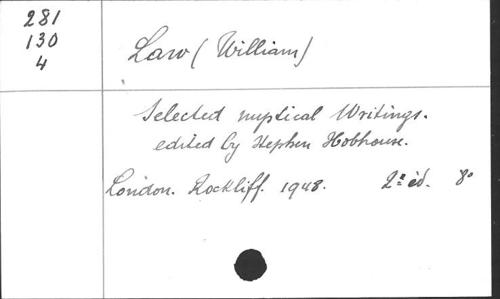 281
130
4
Law (William)
Selected mystical Writings.
edited by Stephen Hobhouse.
London. Rockliff. 1948. 2e éd. 8o